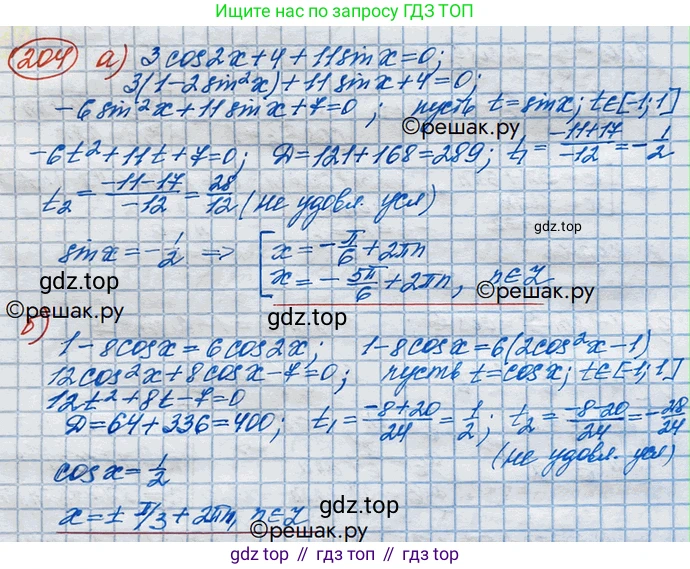 Ищите нас в поиске по запросу ГДЗ ТОП
204 а) 3cos2x+4+11sinx=0;
3(1-2sin²x)+11sinx+4=0;
-6sin²x+11sinx+7=0; пусть t=sinx; t∈[-1;1]
©reшак.ру
-6t²+11t+7=0; D=121+168=289; t₁=(-11+17)/-12=-1/2
t₂=(-11-17)/-12=28/12 (не удовл. усл)
sinx=-1/2 ⇒ [x=-π/6+2πn
x=-5π/6+2πn, n∈Z
gdz.top
©reшак.ру
gdz.top
©reшак.ру
gdz.top
б)
1-8cosx=6cos2x; 1-8cosx=6(2cos²x-1)
12cos²x+8cosx-7=0; пусть t=cosx; t∈[-1;1]
12t²+8t-7=0
D=64+336=400; t₁=(-8+20)/24=1/2; t₂=(-8-20)/24=-28/24
(не удовл. усл)
cosx=1/2
x=±π/3+2πn, n∈Z
gdz.top
©reшак.ру
©reшак.ру
gdz.top // гдз.топ // gdz.top